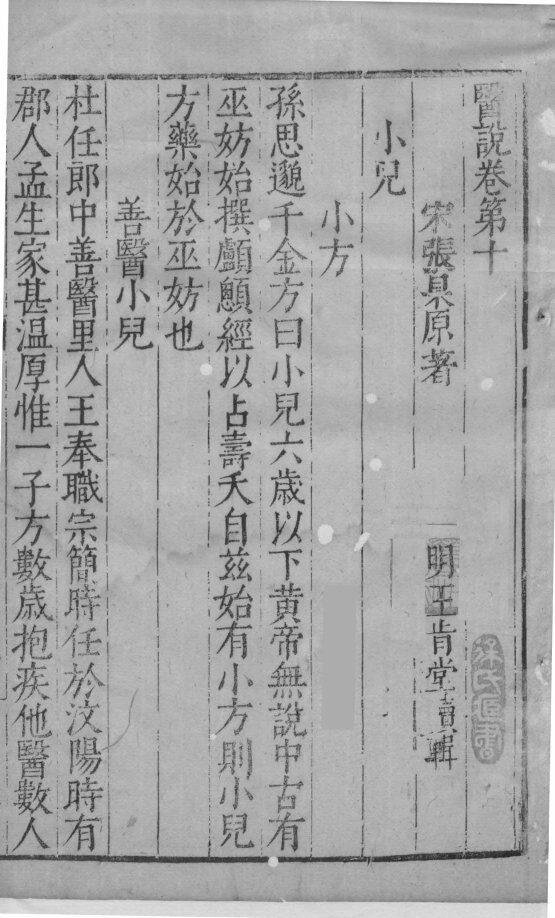 醫說卷第十
宋張杲原著 明王肯堂續輯
小兒
小方
孫思邈千金方曰小兒六歲以下黃帝無說中古有
巫妨始撰顱顖經以占壽夭自茲始有小方則小兒
方藥始於巫妨也
善醫小兒
杜任郎中善醫里人王奉職宗簡時任於汶陽時有
郡人孟生家甚溫厚惟一子方數歲抱疾他醫數人